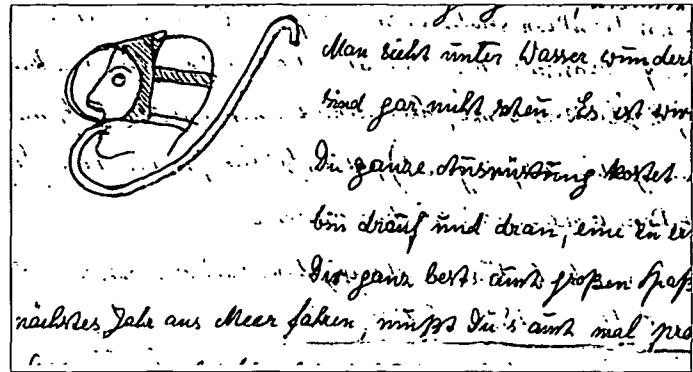 Man sieht unter Wasser wunder
sind gar nicht scheu. Es ist wir
Die ganze Ausrüstung kostet
bin drauf und dran, eine zu er
Dir ganz best. auch großen Spaß
nächstes Jahr ans Meer fahren, mußt Du's auch mal pro